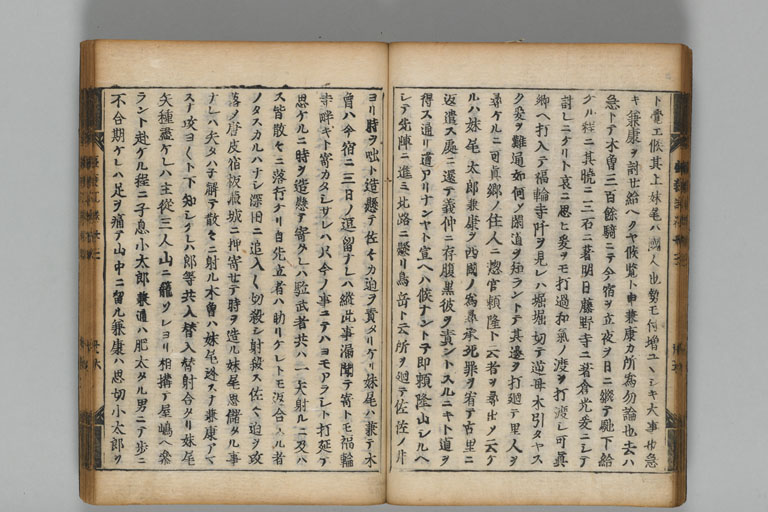 ト覺エ候其上妹尾ハ國人也勢モ何増ユヽシキ大事也急
キ兼康ヲ討世給ヘクヤ候覧ト申兼康カ所為勿論也去ハ
急トテ木曽三百餘騎ニテ今宿ヲ立夜ヲ日ニ継テ馳下給
ケル程ニ其暁ニ三石ニ著明日藤野寺ニ著倉光爰ニシテ
討レニケリト哀ニ思ヒ爰ヲモ打過和氣ノ渡ヲ打渡シ可真
郷ヘ打入テ福輪寺阡ヲ見レハ堀堀切テ逆母木引タヤス
ク爰ヲ難通如何ノ閑道ヲ知ラントテ其邊ヲ打廻テ里人ヲ
尋ケルニ可真郷ノ住人ニ惣官頼隆ト云者ヲ尋出ノ云ケ
ルハ妹尾太郎兼康ヲ西國ノ為尋承死罪ヲ宥テ古里ニ
返遣ス處ニ還テ義仲ニ存腹黒彼ヲ責ントスルニキト道ヲ
得ス通リ道アリナンヤト宣ヘハ候ナントテ即頼隆山シルヘ
シテ先陣ニ進ミ北路ニ懸リ鳥岳ト云所ヲ廻テ佐佐ノ井
ヨリ時ヲ咄ト造懸テ佐セカ迫ヲ責タリケリ妹尾ハ兼テ木
曽ハ今宿ニ三日ノ逗留ナレハ縦此事漏聞テ寄トモ福輪
寺畔キト寄カタシサレハ只今ノ事ニテハヨモアラシト打延テ
思ケルニ時ヲ造懸テ寄タレハ驅武者共ハ一矢射ルニ及ハ
ス皆散セニ落行ケリ自先立者ハ助リケレトモ返合スル者
ノタスカルハナシ深田ニ追入〱切殺シ射殺ス佐セカ迫ヲ攻
落ノ唐皮宿板倉城ニ押寄セテ時ヲ造ル妹尾思儲タル事
ナレハ矢タハ子解テ散セニ射ル木曽ハ妹尾迯スナ兼康アマ
スナ攻ヨ〱ト下知シケレハ郎等共入替入替射合タリ妹尾
矢種盡ケレハ主従三人山ニ籠ソレヨリ相構テ屋嶋ヘ參
ラント赴ケル程ニ子息小太郎兼通ハ肥太タル男ニテ歩ニ
不合期ケレハ足ヲ痛テ山中ニ留ル兼康ハ思切小太郎ヲ